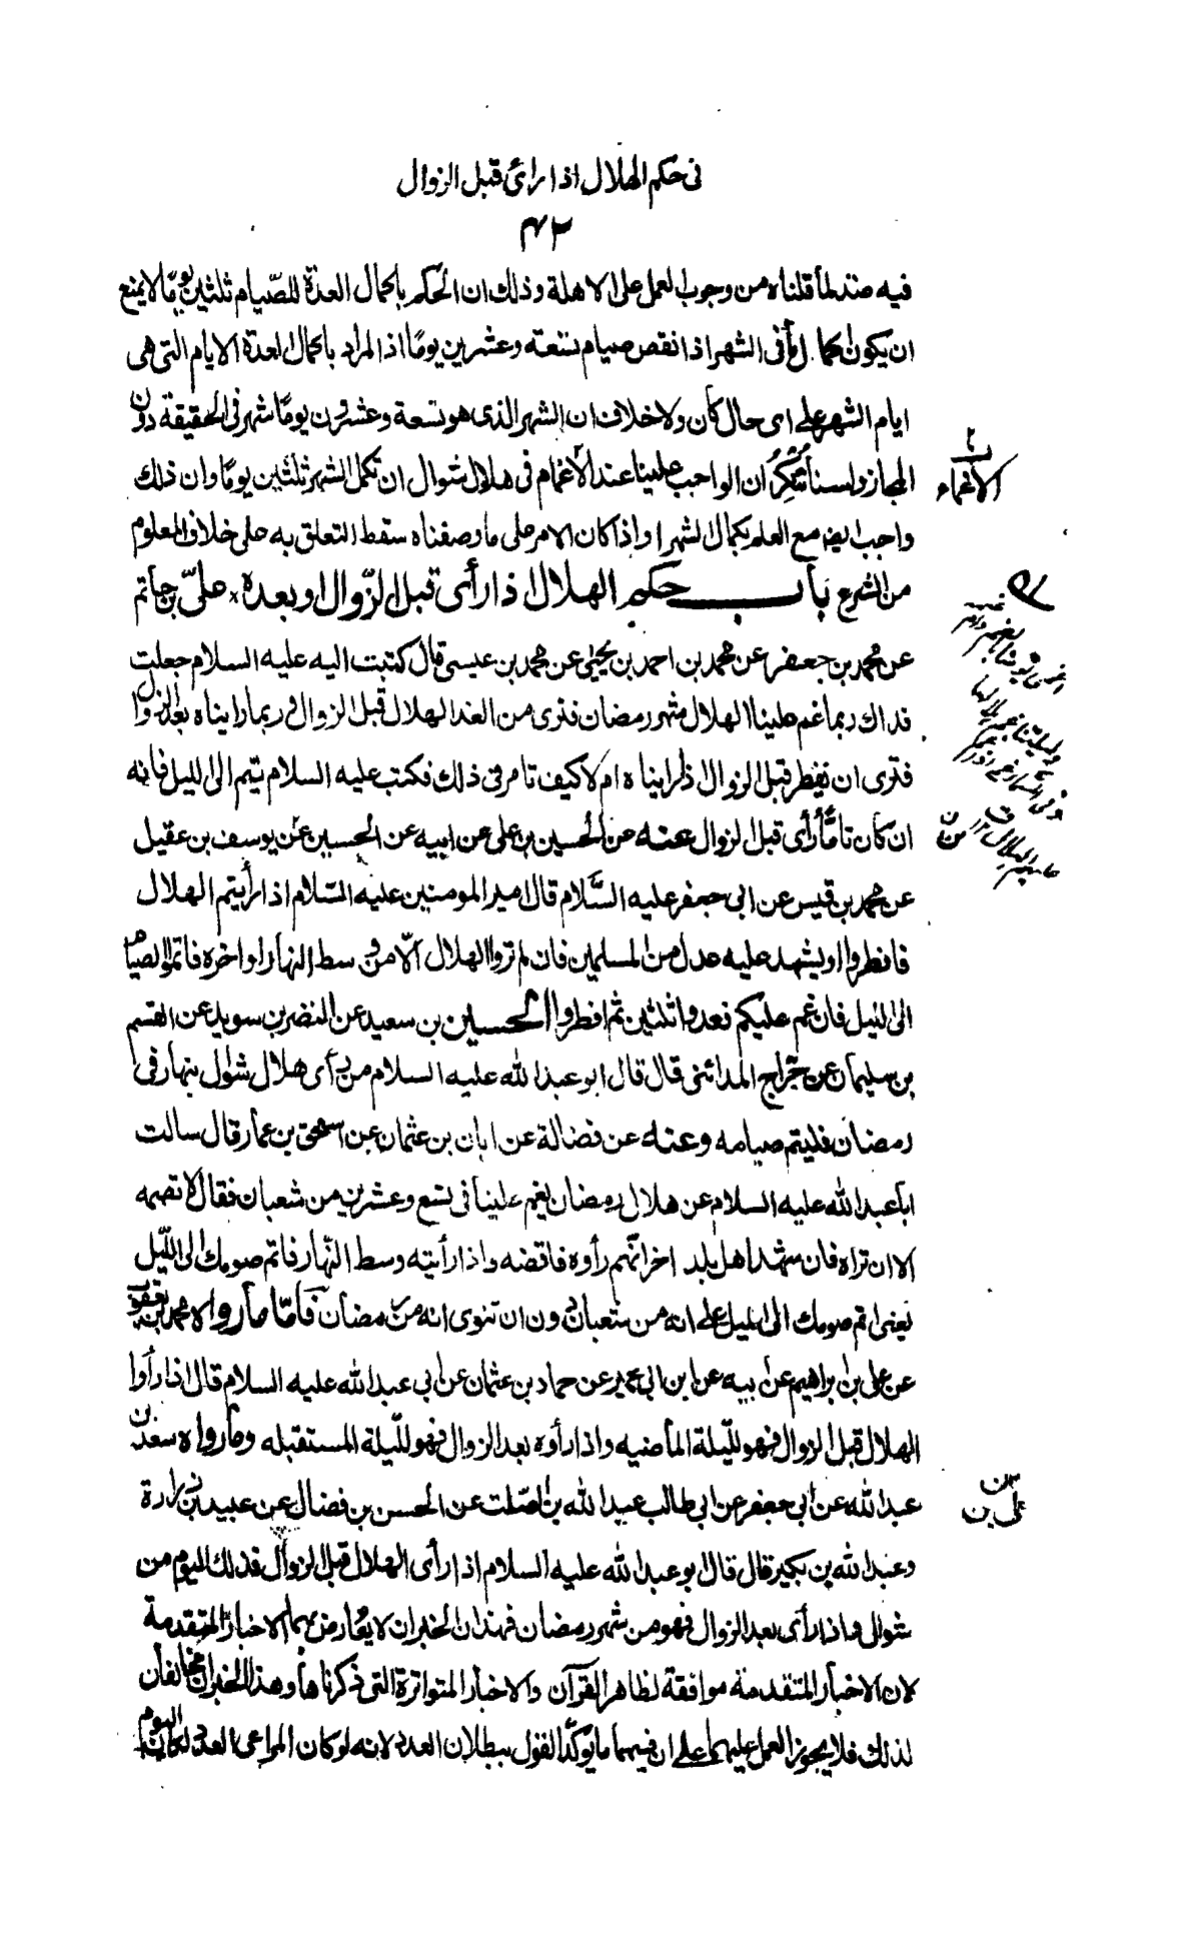 في حكم الهلال اذا رائ قبل الزوال
٤٢
فيه ضد لما قلناه من وجوب العمل على الاهلة وذلك ان الحكم باكمال العدة للصّيام ثلثين يومًا لا يمنع
ان يكون اكمالها في الشهر اذا نقص صيام تسعة وعشرين يومًا اذ المراد باكمال العدة الايام التي هي
ايام الشهر على اى حال كان ولا خلاف ان الشهر الذى هو تسعة وعشرون يومًا شهر في الحقيقة دون
المجاز ولسنا نُنْكِرُ ان الواجب علينا عند الأغمام في هلال شوال ان نكمل الشهر ثلثين يومًا وان ذلك
واجب ايضا مع العلم بكمال الشهر واذا كان الامر على ما وصفناه سقط التعلق به على خلاف المعلوم
من الشرع باب حكم الهلال اذا رأى قبل الزّوال او بعده علىّ بن حاتم
عن محمد بن جعفر عن محمد بن احمد بن يحيى عن محمد بن عيسى قال كتبت اليه عليه السلام جعلت
فداك ربما غم علينا الهلال شهر رمضان فنرى من الغد الهلال قبل الزوال و ربما رايناه بعد الزوال
فترى ان نفطر قبل الزوال اذا رايناه ام لا كيف تامر في ذلك فكتب عليه السلام يتم الى الليل فانه
ان كان تامًّا رأى قبل الزوال عنه عن الحسين بن على عن ابيه عن الحسين عن يوسف بن عقيل
عن محمد بن قيس عن ابى جعفر عليه السَّلام قال امير المومنين عليه السّلام اذا رأيتم الهلال
فافطروا او يشهد عليه عدل من المسلمين فان لم تروا الهلال الّا من وسط النهار او اخره فاتموا الصيام
الى الليل فان غم عليكم فعدوا ثلثين ثم افطروا الحسين بن سعيد عن النضر بن سويد عن القسم
بن سليمان عن جرّاح المدائنى قال قال ابو عبد الله عليه السلام من رأى هلال شوال بنهار في
رمضان فليتم صيامه وعنه عن فضالة عن ابان بن عثمان عن اسحق بن عمار قال سالت
ابا عبد الله عليه السلام عن هلال رمضان يغم علينا في تسع وعشرين من شعبان فقال لا تصمه
الا ان تراه فان شهد اهل بلد اخر انّهم رأوه فاقضه واذا رأيته وسط النّهار فاتم صومك الى اللّيل
يعنى اتم صومك الى الليل على انه من شعبان دون ان تنوى انه من رمضان فأمّا ما رواه محمد بن يعقوب
عن على بن ابراهيم عن ابيه عن ابن ابى عمير عن حماد بن عثمان عن ابى عبد الله عليه السلام قال اذا رأوا
الهلال قبل الزوال فهو لليّلة الماضيه واذا رأوه بعد الزوال فهو للّيلة المستقبله وما رواه سعد بن
عبد الله عن ابى جعفر عن ابى طالب عبد الله بن الصّلت عن الحسن بن فضال عن عبيد بن زرارة
وعبد الله بن بكير قال قال ابو عبد الله عليه السلام اذا رأى الهلال قبل الزوال فذلك اليوم من
شوال واذا رأى بعد الزوال فهو من شهر رمضان فهذان الخبران لا يعارض بهما الاخبار المتقدمة
لان الاخبار المتقدمة موافقة لظاهر القرآن والاخبار المتواترة التى ذكرناها وهذا الخبران مخالفان
لذلك فلا يجوز العمل عليهما على ان فيهما ما يوكّد القول ببطلان العدد لانه لو كان المراعى العدد لكان اليوم
الاغماء
على بن